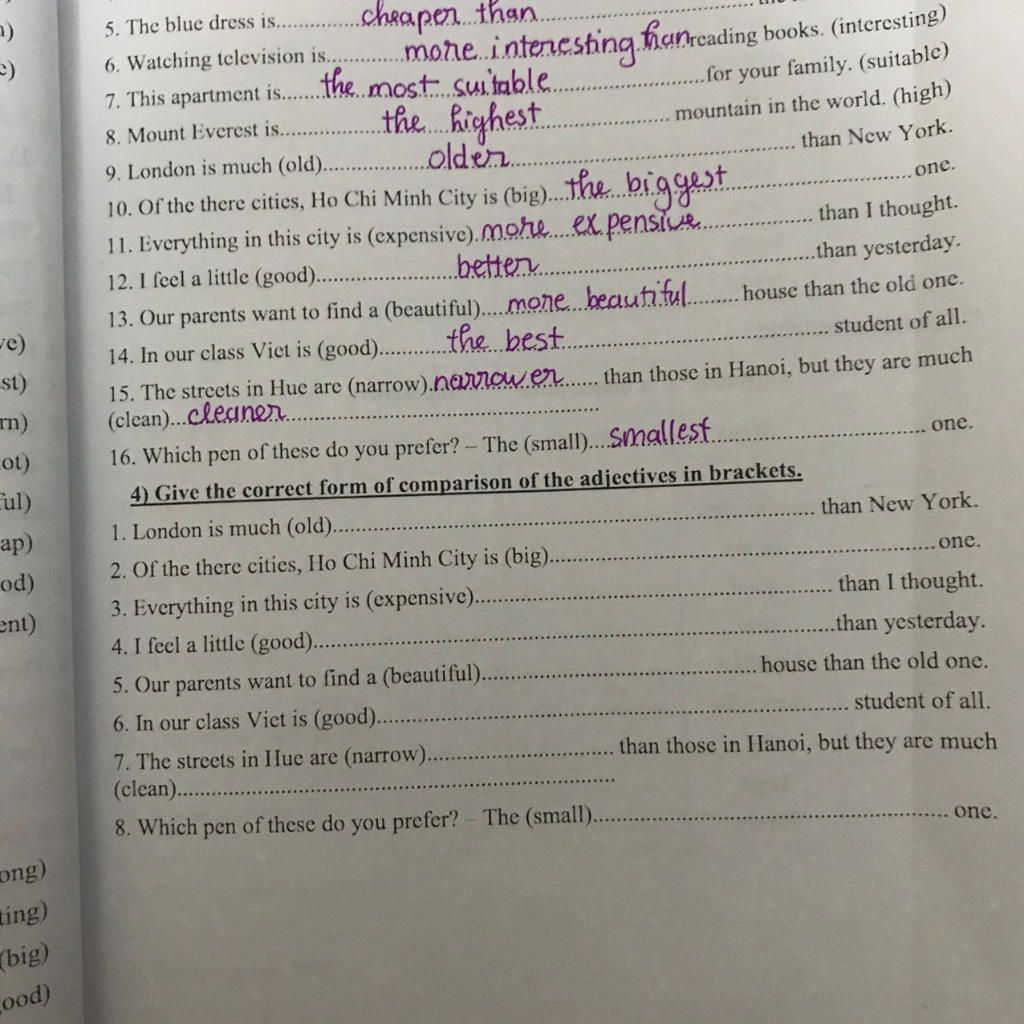 5. The blue dress is..............cheaper than..............................
6. Watching television is..............more interesting than reading books. (interesting)
7. This apartment is.......the most suitable........................for your family. (suitable)
8. Mount Everest is..................the highest........................ mountain in the world. (high)
9. London is much (old)..................older.............................................. than New York.
10. Of the there cities, Ho Chi Minh City is (big)....the biggest..............................one.
11. Everything in this city is (expensive).more expensive.................. than I thought.
12. I feel a little (good)........................better..............................................than yesterday.
13. Our parents want to find a (beautiful)....more beautiful......... house than the old one.
14. In our class Viet is (good)..............the best............................................ student of all.
15. The streets in Hue are (narrow).narrower...... than those in Hanoi, but they are much
(clean)...cleaner..................................................
16. Which pen of these do you prefer? – The (small)....smallest.................................... one.
4) Give the correct form of comparison of the adjectives in brackets.
1. London is much (old)................................................................................ than New York.
2. Of the there cities, Ho Chi Minh City is (big).................................................................one.
3. Everything in this city is (expensive)............................................................ than I thought.
4. I feel a little (good).......................................................................................than yesterday.
5. Our parents want to find a (beautiful).............................................. house than the old one.
6. In our class Viet is (good)................................................................................ student of all.
7. The streets in Hue are (narrow).............................. than those in Hanoi, but they are much
(clean)..........................................................................
8. Which pen of these do you prefer? – The (small)............................................................ one.
ong)
ting)
(big)